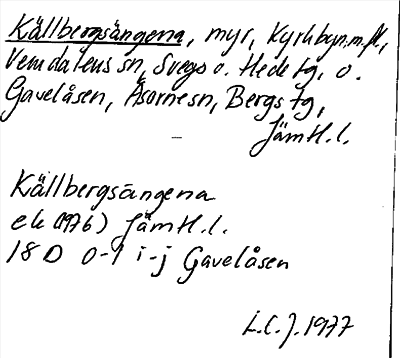 Källbergsängena, myr, Kyrkbyn m.fl.,
Vemdalens sn, Svegs o. Hede tg, o.
Gavelåsen, Åsarne sn, Bergs tg,
Jämtl. l.
Källbergsängena
ek (1976) Jämtl. l.
18 D 0-1 i-j Gavelåsen
L.C.J. 1977